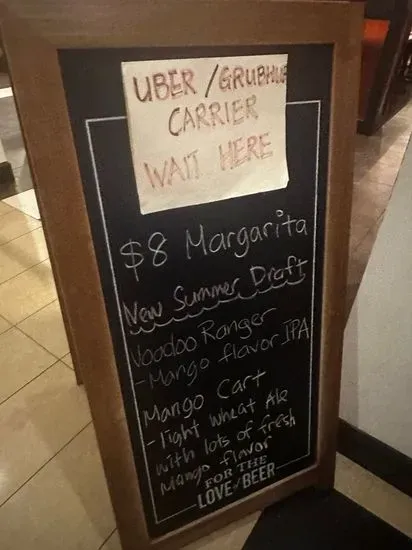 UBER / GRUBHUB
CARRIER
WAIT HERE
$8 Margarita
New Summer Draft
Voodoo Ranger
- Mango flavor IPA
Mango Cart
- light wheat Ale
with lots of fresh
Mango flavor
FOR THE
LOVE of BEER